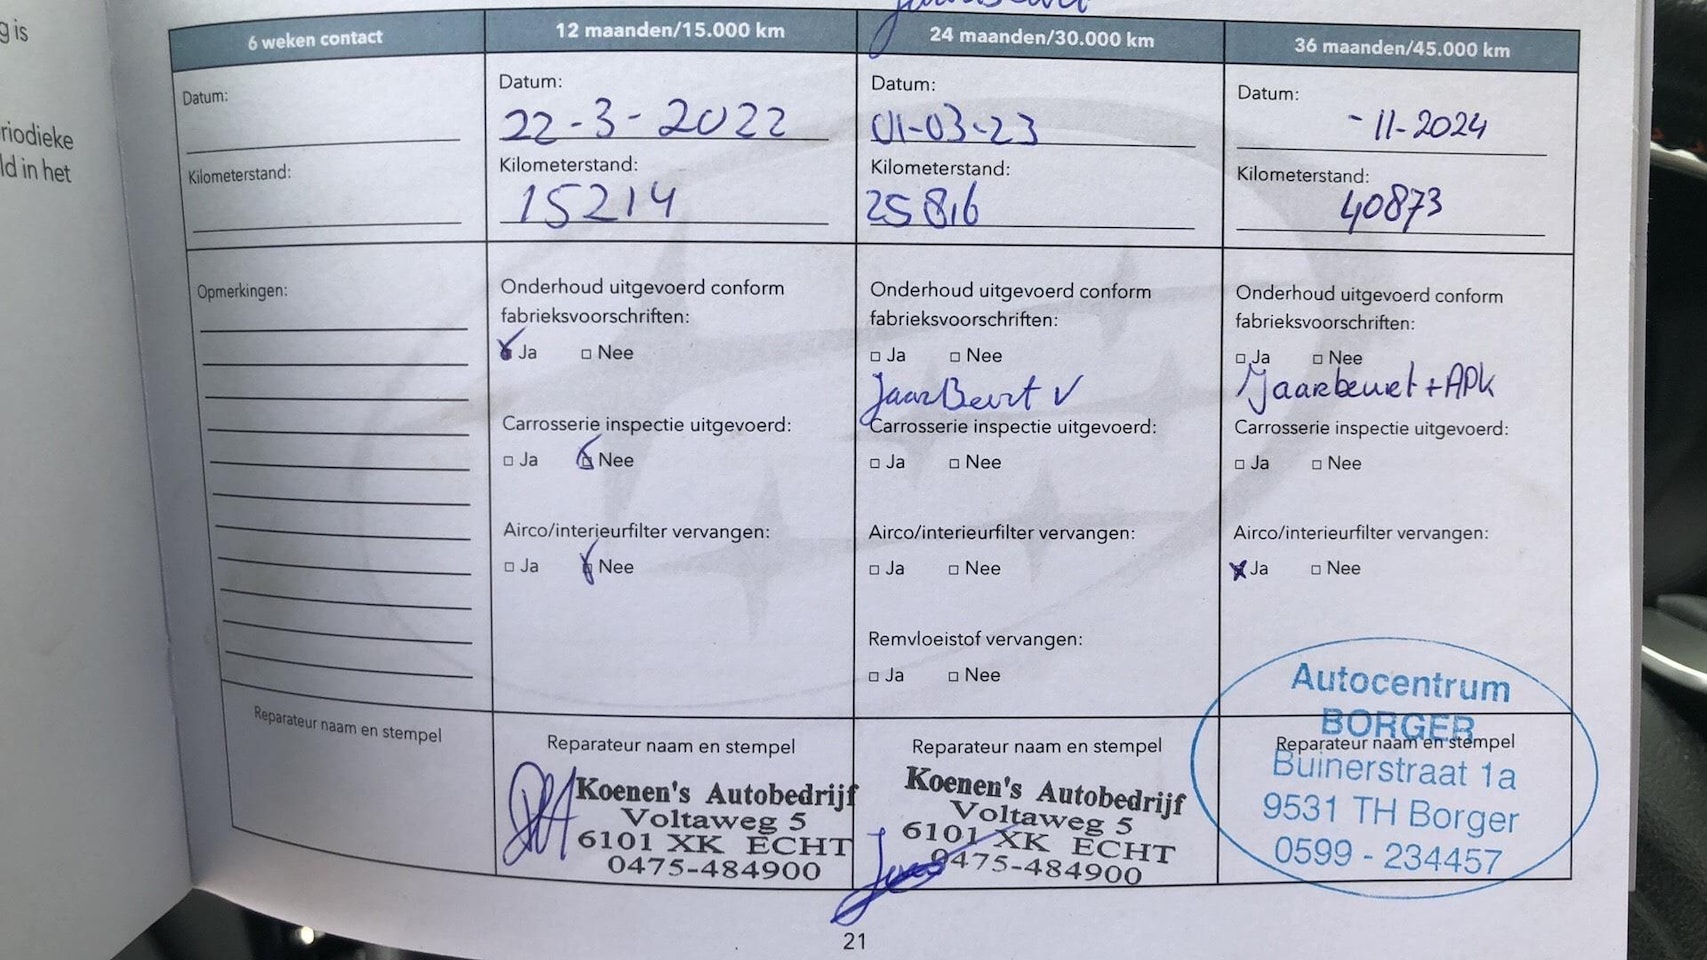 g is
riodieke
ld in het
6 weken contact
Datum:
Kilometerstand:
Opmerkingen:
Reparateur naam en stempel
12 maanden/15.000 km
Datum:
22-3-2022
Kilometerstand:
15214
Onderhoud uitgevoerd conform
fabrieksvoorschriften:
Ja Nee
Carrosserie inspectie uitgevoerd:
Ja Nee
Airco/interieurfilter vervangen:
Ja Nee
Reparateur naam en stempel
Koenen's Autobedrijf
Voltaweg 5
6101 XK ECHT
0475-484900
24 maanden/30.000 km
Datum:
01-03-23
Kilometerstand:
25816
Onderhoud uitgevoerd conform
fabrieksvoorschriften:
Ja Nee
JaarBeurt √
Carrosserie inspectie uitgevoerd:
Ja Nee
Airco/interieurfilter vervangen:
Ja Nee
Remvloeistof vervangen:
Ja Nee
Reparateur naam en stempel
Koenen's Autobedrijf
Voltaweg 5
6101 XK ECHT
0475-484900
36 maanden/45.000 km
Datum:
-11-2024
Kilometerstand:
40873
Onderhoud uitgevoerd conform
fabrieksvoorschriften:
Ja Nee
Jaarbeurt + APK
Carrosserie inspectie uitgevoerd:
Ja Nee
Airco/interieurfilter vervangen:
Ja Nee
Reparateur naam en stempel
Autocentrum
BORGER
Buinerstraat 1a
9531 TH Borger
0599 - 234457
21